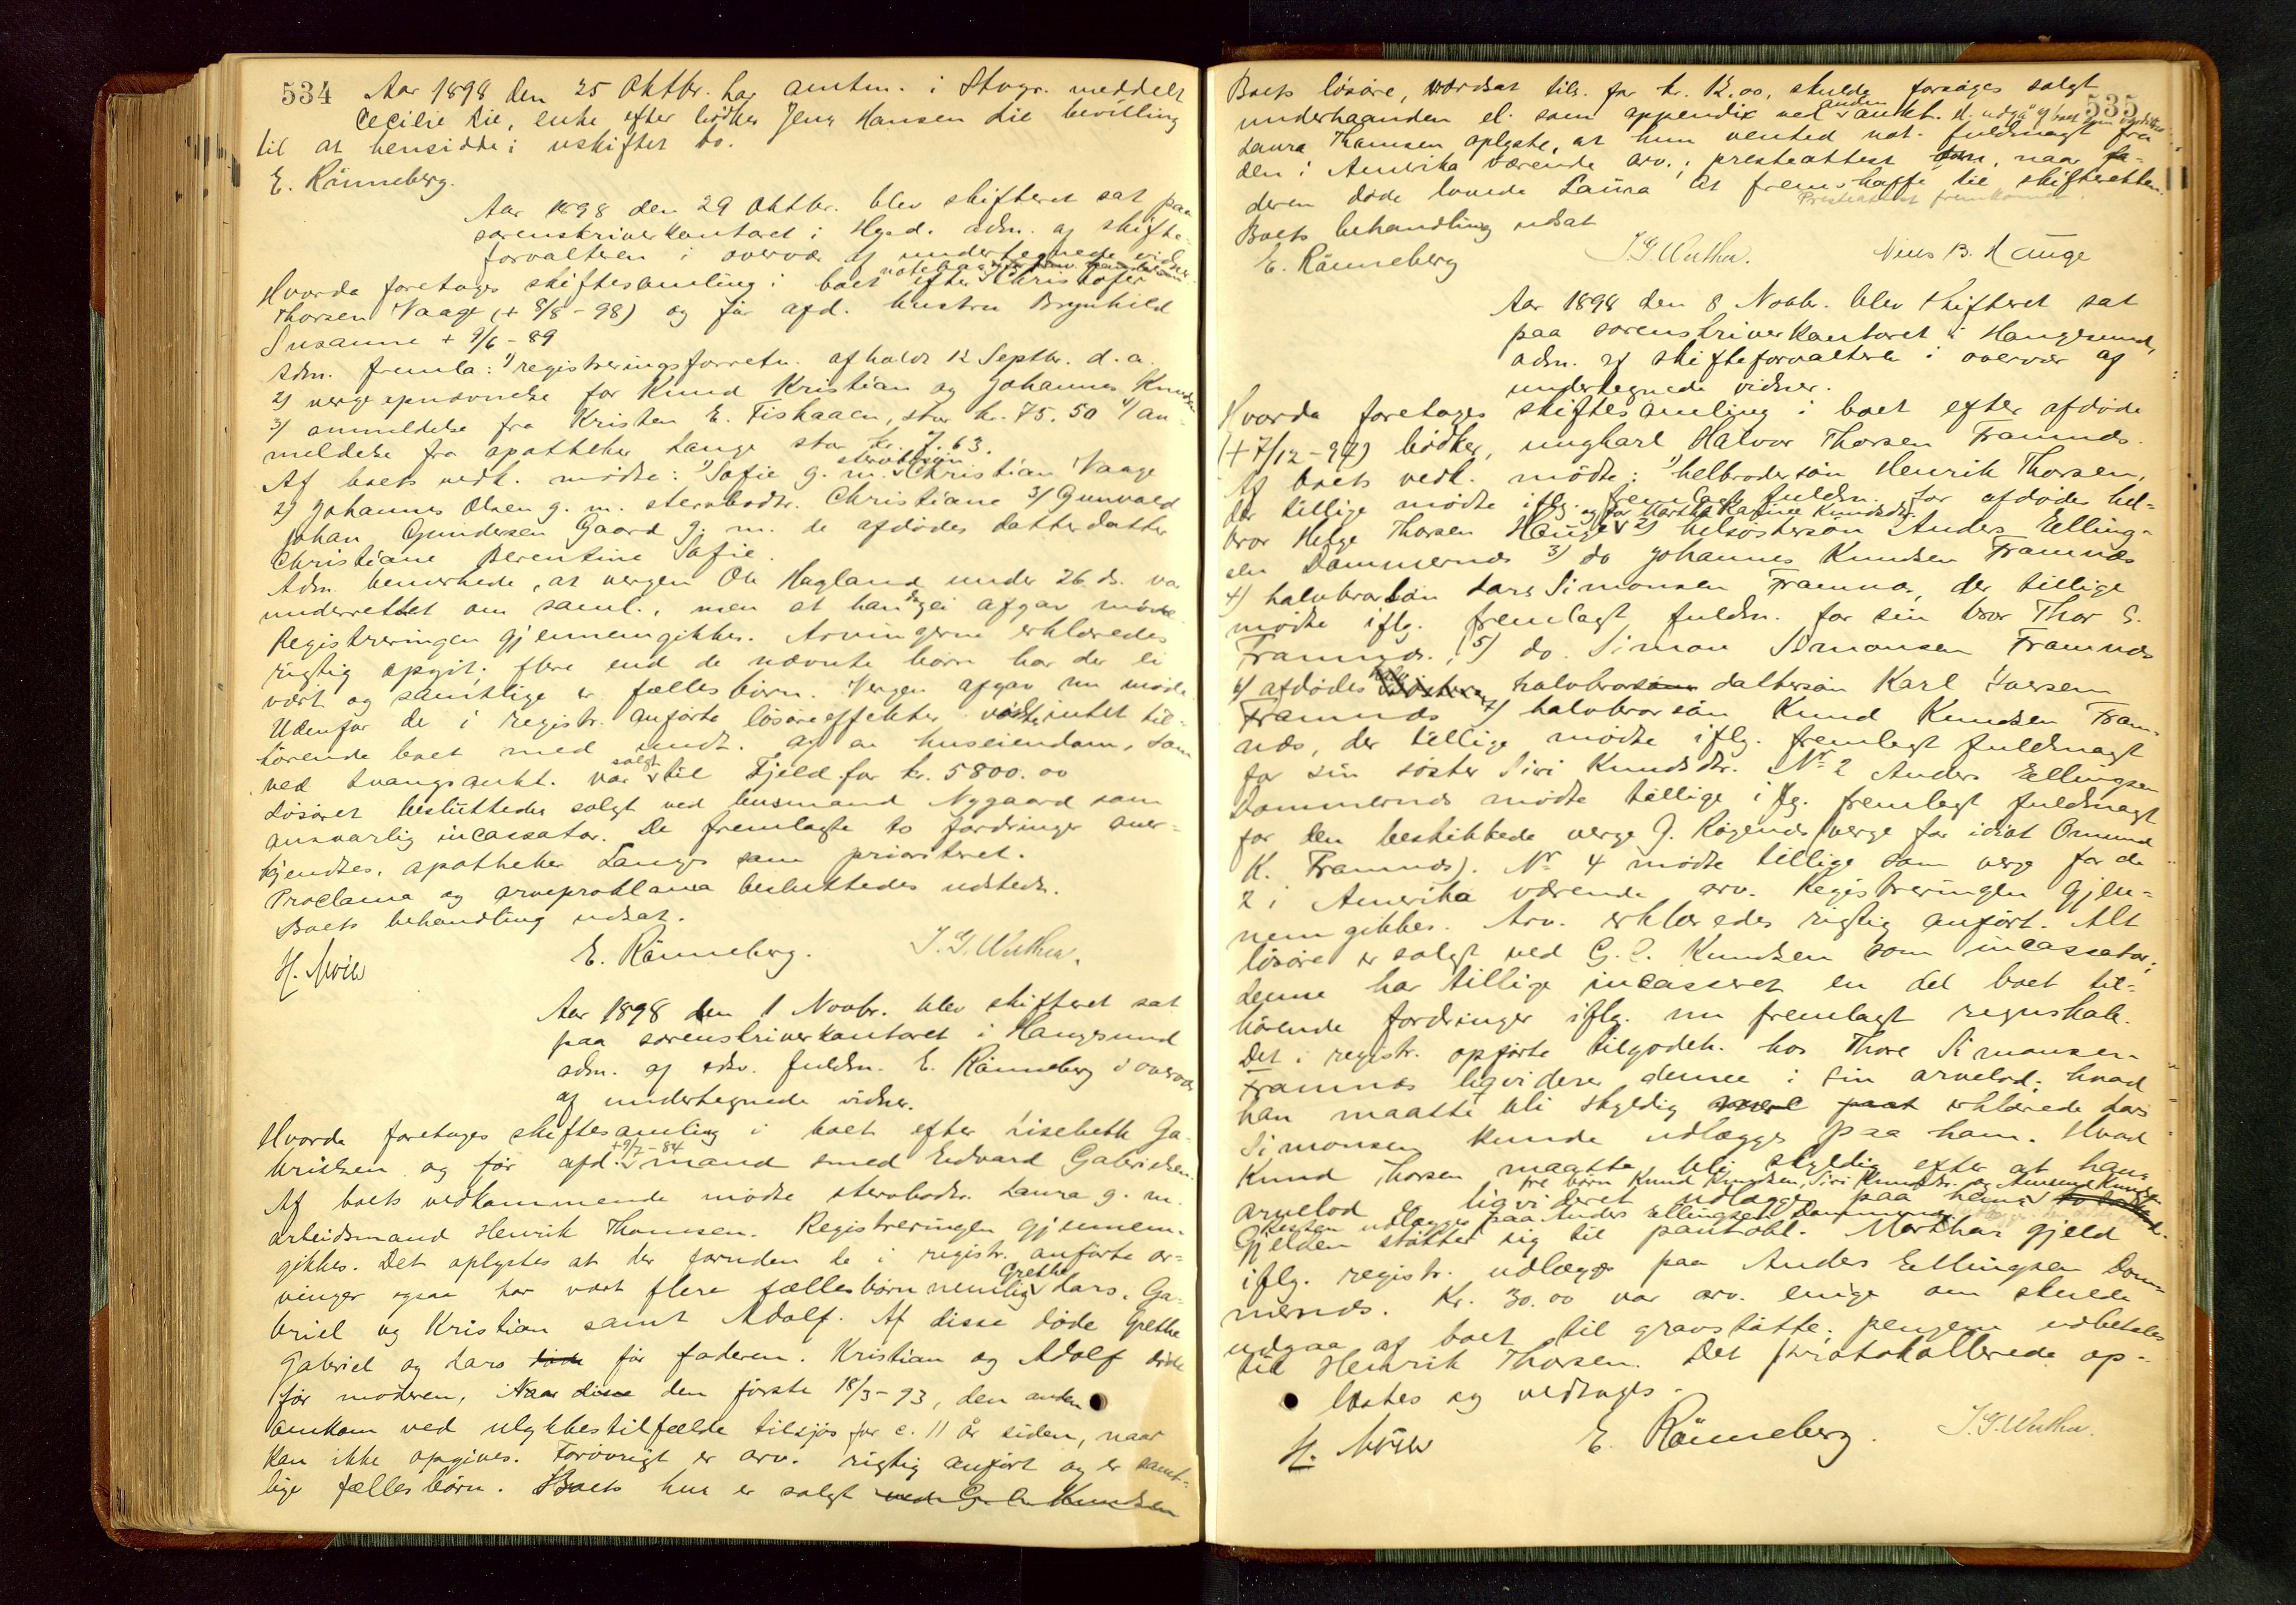 534
Aar 1898 den 25 Oktbr. har amtm. i Stvgr. meddelt
Cecilie Lie, enke efter bødker Jens Hansen Lie bevilling
til at hensidde i uskiftet bo.
E. Rönneberg.
Aar 1898 den 29 Oktbr. blev skifteret sat paa
sorenskriverkontoret i Hgsd. adm. af skifte-
forvalteren i overvær af undertegnede vidner.
Hvorda foretages skiftesamling i boet efter Christofer
Thorsen Vaage (+ 8/8 - 98) og før afd. hustru Brynhild
Susanne + 9/6 - 89
Adm. fremla: 1) registreringsforretn. afholdt 12 Septbr. d. a.
2) vergeopnævnelse for Knud Kristian og Johannes Knudsen
3) anmeldelse fra Kristen E. Fiskaaen, stor kr. 75.50 4) an-
meldelse fra apotheker Lange stor kr. 7.63.
Af boets vedk. mødte: 1) Sofie g. m. stervbosøn Christian Vaage
2) Johannes Olsen g. m. stervbodtr. Christiane 3) Gunvald
Johan Gundersen Gaard g. m. de afdødes datterdatter
Christiane Berentine Sofie.
Adm. bemerkede, at vergen Ole Hagland under 26. ds. var
underrettet om saml., men at han ei afgav møde.
Registreringen gjennemgikkes. Arvingerne erklæredes
rigtig opgit; flere end de nævnte børn har der ei
vært og samtlige er fællesbørn. Vergen afgav nu møde.
Udenfor de i registr. anførte løsøreeffekter vidste intet til-
hørende boet med undt. af en huseiendom, som
ved tvangsaukt. var solgt til Fjeld for kr. 5800.00
Løsøret besluttedes solgt ved lensmand Nygaard som
ansvarlig incassator. De fremlagte to fordringer aner-
kjendtes, apotheker Langes som prioriteret.
Proclama og arveproklama besluttedes udstedt.
Boets behandling udsat.
H. Möller
E. Rönneberg.
J. G. Wuthu.
Aar 1898 den 1 Novbr. blev skifteret sat
paa sorenskriverkontoret i Haugesund
adm. af edsv. fuldm. E. Rönneberg i overvær
af undertegnede vidner.
Hvorda foretages skiftesamling i boet efter Lisebeth Ga-
brielsen og før afd. +9/7-84 mand smed Edvard Gabrielsen.
Af boets vedkommende mødte stervbodtr. Laura g. m.
arbeidsmand Henrik Thomsen. Registreringen gjennem-
gikkes. Det oplystes at der foruden de i registr. anførte ar-
vinger ogsaa har vært flere fællesbørn nemlig Grethe Lars, Ga-
briel og Kristian samt Adolf. Af disse døde Grethe
Gabriel og Lars før faderen. Kristian og Adolf døde
før moderen, den første 18/3-93, den anden
omkom ved ulykkestilfælde tilsjøs for c. 11 år siden, naar
kan ikke opgives. Forøvrigt er arv. rigtig anført og er samt-
lige fællesbørn. Boets hus er solgt ved G. C. Knudsen
535
Boets løsøre, vordsat tils. for kr. 12.00, skulde forsøges solgt
underhaanden el. som appendix ved anden aukt.
Laura Thomsen oplyste, at hun vented not. fuldmagt fra
den i Amerika værende arv.; presteattest, naar fa-
deren døde lovede Laura at fremskaffe til skifteretten.
Presteattest fremkommet.
Boets behandling udsat
E. Rönneberg
J. G. Wuthu.
Niels B. Hauge
Aar 1898 den 8 Novbr. blev skifteret sat
paa sorenskriverkontoret i Haugesund,
adm. af skifteforvalteren i overvær af
undertegnede vidner.
Hvorda foretages skiftesamling i boet efter afdøde
(+ 7/12 - 97) bødker, ungkarl Halvor Thorsen Framnæs.
Af boets vedk. mødte: 1) helbrodersøn Henrik Thorsen,
der tillige mødte iflg. fremlagt fuldm. for afdødes hel-
bror Helge Thorsen Hauge og for Martha Karine Knudsdtr. 2) helsøstersøn Anders Elling-
sen Dommersnes 3) do Johannes Knudsen Framnæs
4) halvbrorsøn Lars Simonsen Framnæs, der tillige
mødte iflg. fremlagt fuldm. for sin bror Thor S.
Framnæs. 5) do. Simon Simonsen Framnæs
6) afdødes halvbrors dattersøn Karl Iversen
Framnæs 7) halvbrorsøn Knud Knudsen Fram-
næs, der tillige mødte iflg. fremlagt fuldmagt
for sin søster Siri Knudsdtr. No 2 Anders Ellingsen
Dommersnes mødte tillige iflg. fremlagt fuldmagt
for den beskikkede verge J. Røgenes (verge for idiot Omund
K. Framnæs). Nr 4 mødte tillige som verge for de
2 i Amerika værende arv. Registreringen gjen-
nemgikkes. Arv. erklæredes rigtig anført. Alt
løsøre er solgt ved G. C. Knudsen som incassator;
denne har tillige incasseret en del boet til-
hørende fordringer iflg. nu fremlagt regnskab.
Det i registr. opførte tilgodeh. hos Thore Simonsen
Framnæs ligviderer denne i sin arvelod; hvad
han maatte bli skyldig erklærede Lars
Simonsen kunde udlægges paa ham. Hvad
Knud Thorsen maatte bli skyldig efter at hans
arvelod er ligvideret udlægges paa hans tre børn Knud Knudsen, Siri Knudsdtr. og Amund Knudsen
Resten udlægges paa Anders Ellingsen Dommersnes
Gjelden støtter sig til pantobl. Marthas gjeld
iflg. registr. udlægges paa Anders Ellingsen Dom-
mersnes. Kr. 30.00 var arv. enige om skulde
udgaa af boet til gravstøtte; pengene udbetales
til Henrik Thorsen. Det protokollerede op-
læstes og vedtoges.
H. Möller
E. Rönneberg.
J. G. Wuthu.